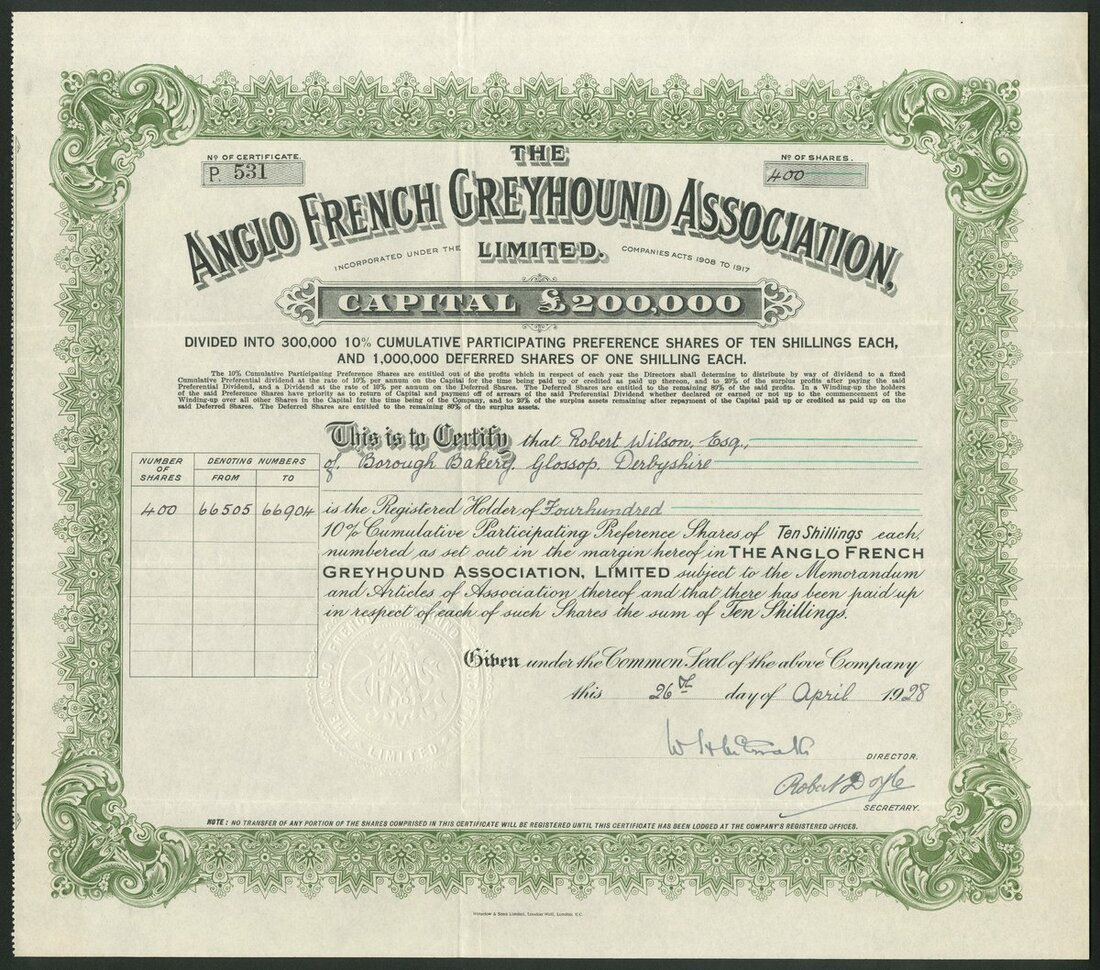 Nº OF CERTIFICATE.
P. 531
Nº OF SHARES.
400
THE
ANGLO FRENCH GREYHOUND ASSOCIATION,
LIMITED.
INCORPORATED UNDER THE COMPANIES ACTS 1908 TO 1917
CAPITAL £200,000
DIVIDED INTO 300,000 10% CUMULATIVE PARTICIPATING PREFERENCE SHARES OF TEN SHILLINGS EACH,
AND 1,000,000 DEFERRED SHARES OF ONE SHILLING EACH.
The 10% Cumulative Participating Preference Shares are entitled out of the profits which in respect of each year the Directors shall determine to distribute by way of dividend to a fixed
Cumulative Preferential dividend at the rate of 10% per annum on the Capital for the time being paid up or credited as paid up thereon, and to 20% of the surplus profits after paying the said
Preferential Dividend, and a Dividend at the rate of 10% per annum on the Deferred Shares. The Deferred Shares are entitled to the remaining 80% of the said profits. In a Winding-up the holders
of the said Preference Shares have priority as to return of Capital and payment off of arrears of the said Preferential Dividend whether declared or earned or not up to the commencement of the
Winding-up over all other Shares in the Capital for the time being of the Company, and to 20% of the surplus assets remaining after repayment of the Capital paid up or credited as paid up on the
said Deferred Shares. The Deferred Shares are entitled to the remaining 80% of the surplus assets.
This is to Certify that Robert Wilson, Esq.,
of Borough Bakery, Glossop, Derbyshire
NUMBER OF SHARES
DENOTING NUMBERS
FROM TO
400 66505 66904
is the Registered Holder of Fourhundred
10% Cumulative Participating Preference Shares of Ten Shillings each,
numbered as set out in the margin hereof in THE ANGLO FRENCH
GREYHOUND ASSOCIATION, LIMITED subject to the Memorandum
and Articles of Association thereof and that there has been paid up
in respect of each of such Shares the sum of Ten Shillings.
THE ANGLO FRENCH GREYHOUND ASSOCIATION LIMITED
Given under the Common Seal of the above Company
this 26th day of April 1928
DIRECTOR.
Robert Doyle
SECRETARY.
NOTE: NO TRANSFER OF ANY PORTION OF THE SHARES COMPRISED IN THIS CERTIFICATE WILL BE REGISTERED UNTIL THIS CERTIFICATE HAS BEEN LODGED AT THE COMPANY'S REGISTERED OFFICES.
Waterlow & Sons Limited, London Wall, London, E.C.